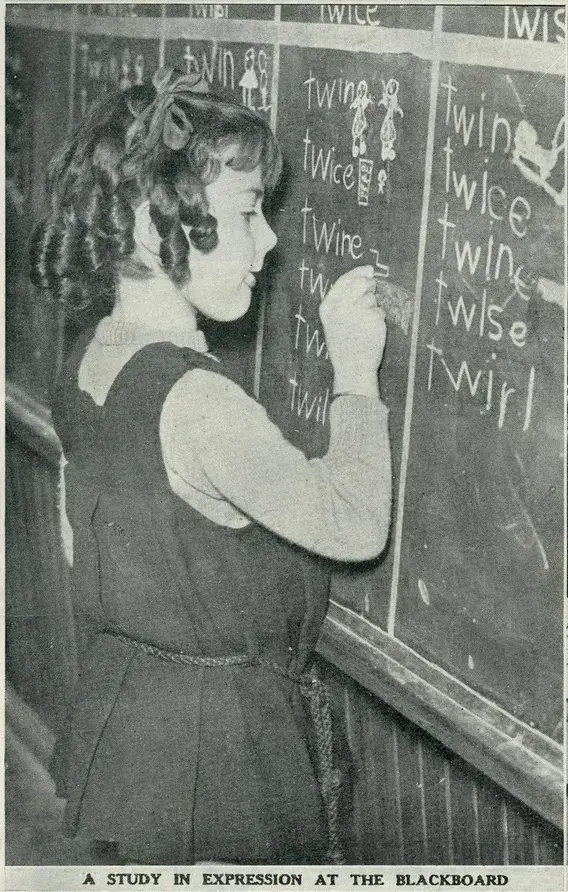 twice
twis
twin
twin
twin
twice
twine
tw
twi
twi
twin
twice
twine
twise
twirl
A STUDY IN EXPRESSION AT THE BLACKBOARD